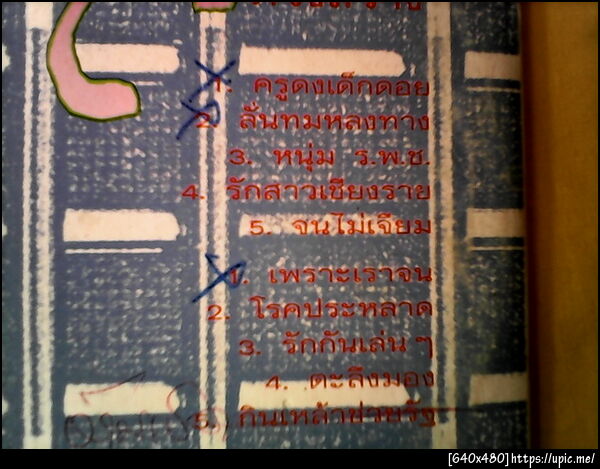 1. ครูดงเด็กดอย
2. ลั่นทมหลงทาง
3. หนุ่ม ร.พ.ช.
4. รักสาวเชียงราย
5. จนไม่เจียม
1. เพราะเราจน
2. โรคประหลาด
3. รักกันเล่นๆ
4. ตะลึงมอง
5. กินเหล้าช่วยรัฐ
[640x480]https://upic.me/